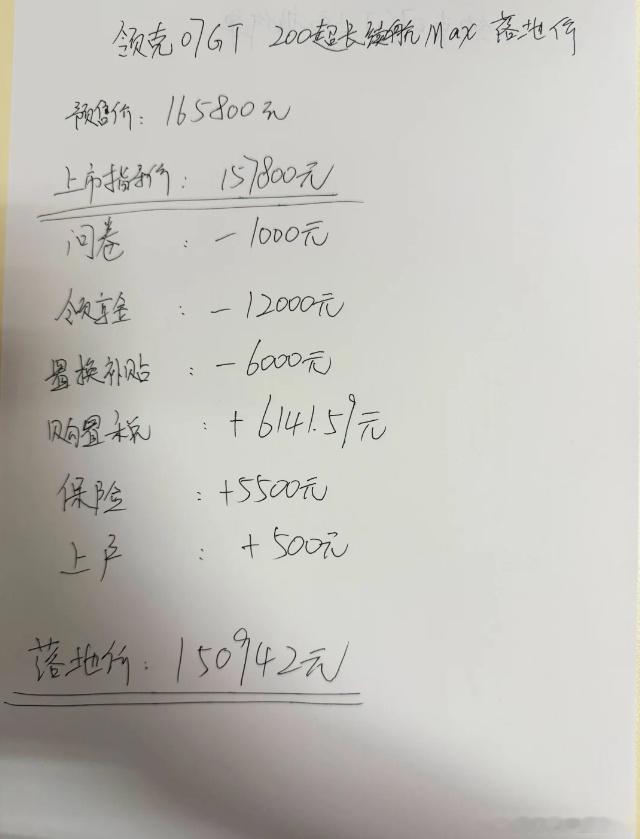 领克07GT 200超长续航Max落地价
预售价：165800元
上市指导价：157800元
问卷：-1000元
领享金：-12000元
置换补贴：-6000元
购置税：+6141.59元
保险：+5500元
上户：+500元
落地价：150942元